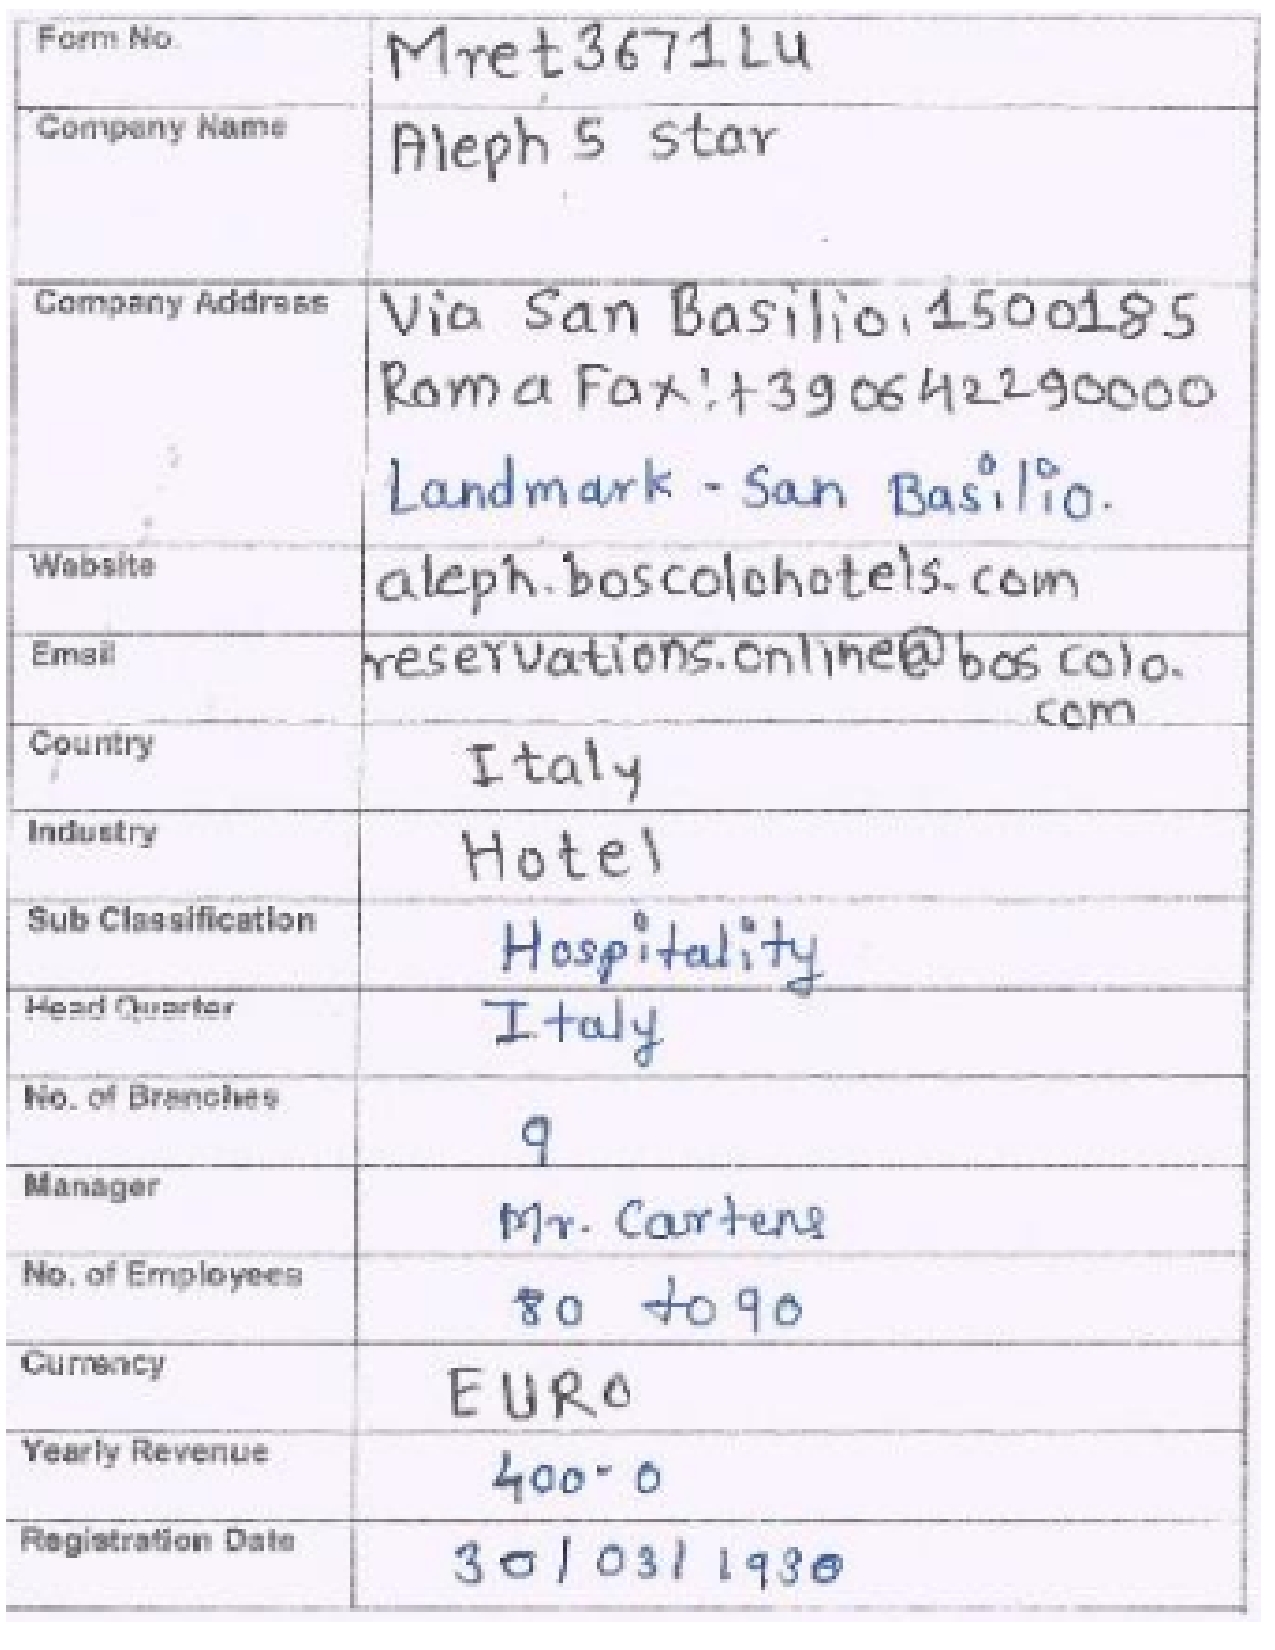 Form No. Mret3671LU
Company Name Aleph 5 star
Company Address Via San Basilio, 1500185
Roma Fax:+390642290000
Landmark - San Basilio.
Website aleph.boscolohotels.com
Email reservations.online@boscolo.
com
Country Italy
Industry Hotel
Sub Classification Hospitality
Head Quarter Italy
No. of Branches 9
Manager Mr. Cartens
No. of Employees 80 to 90
Currency EURO
Yearly Revenue 400-0
Registration Date 30/03/1930